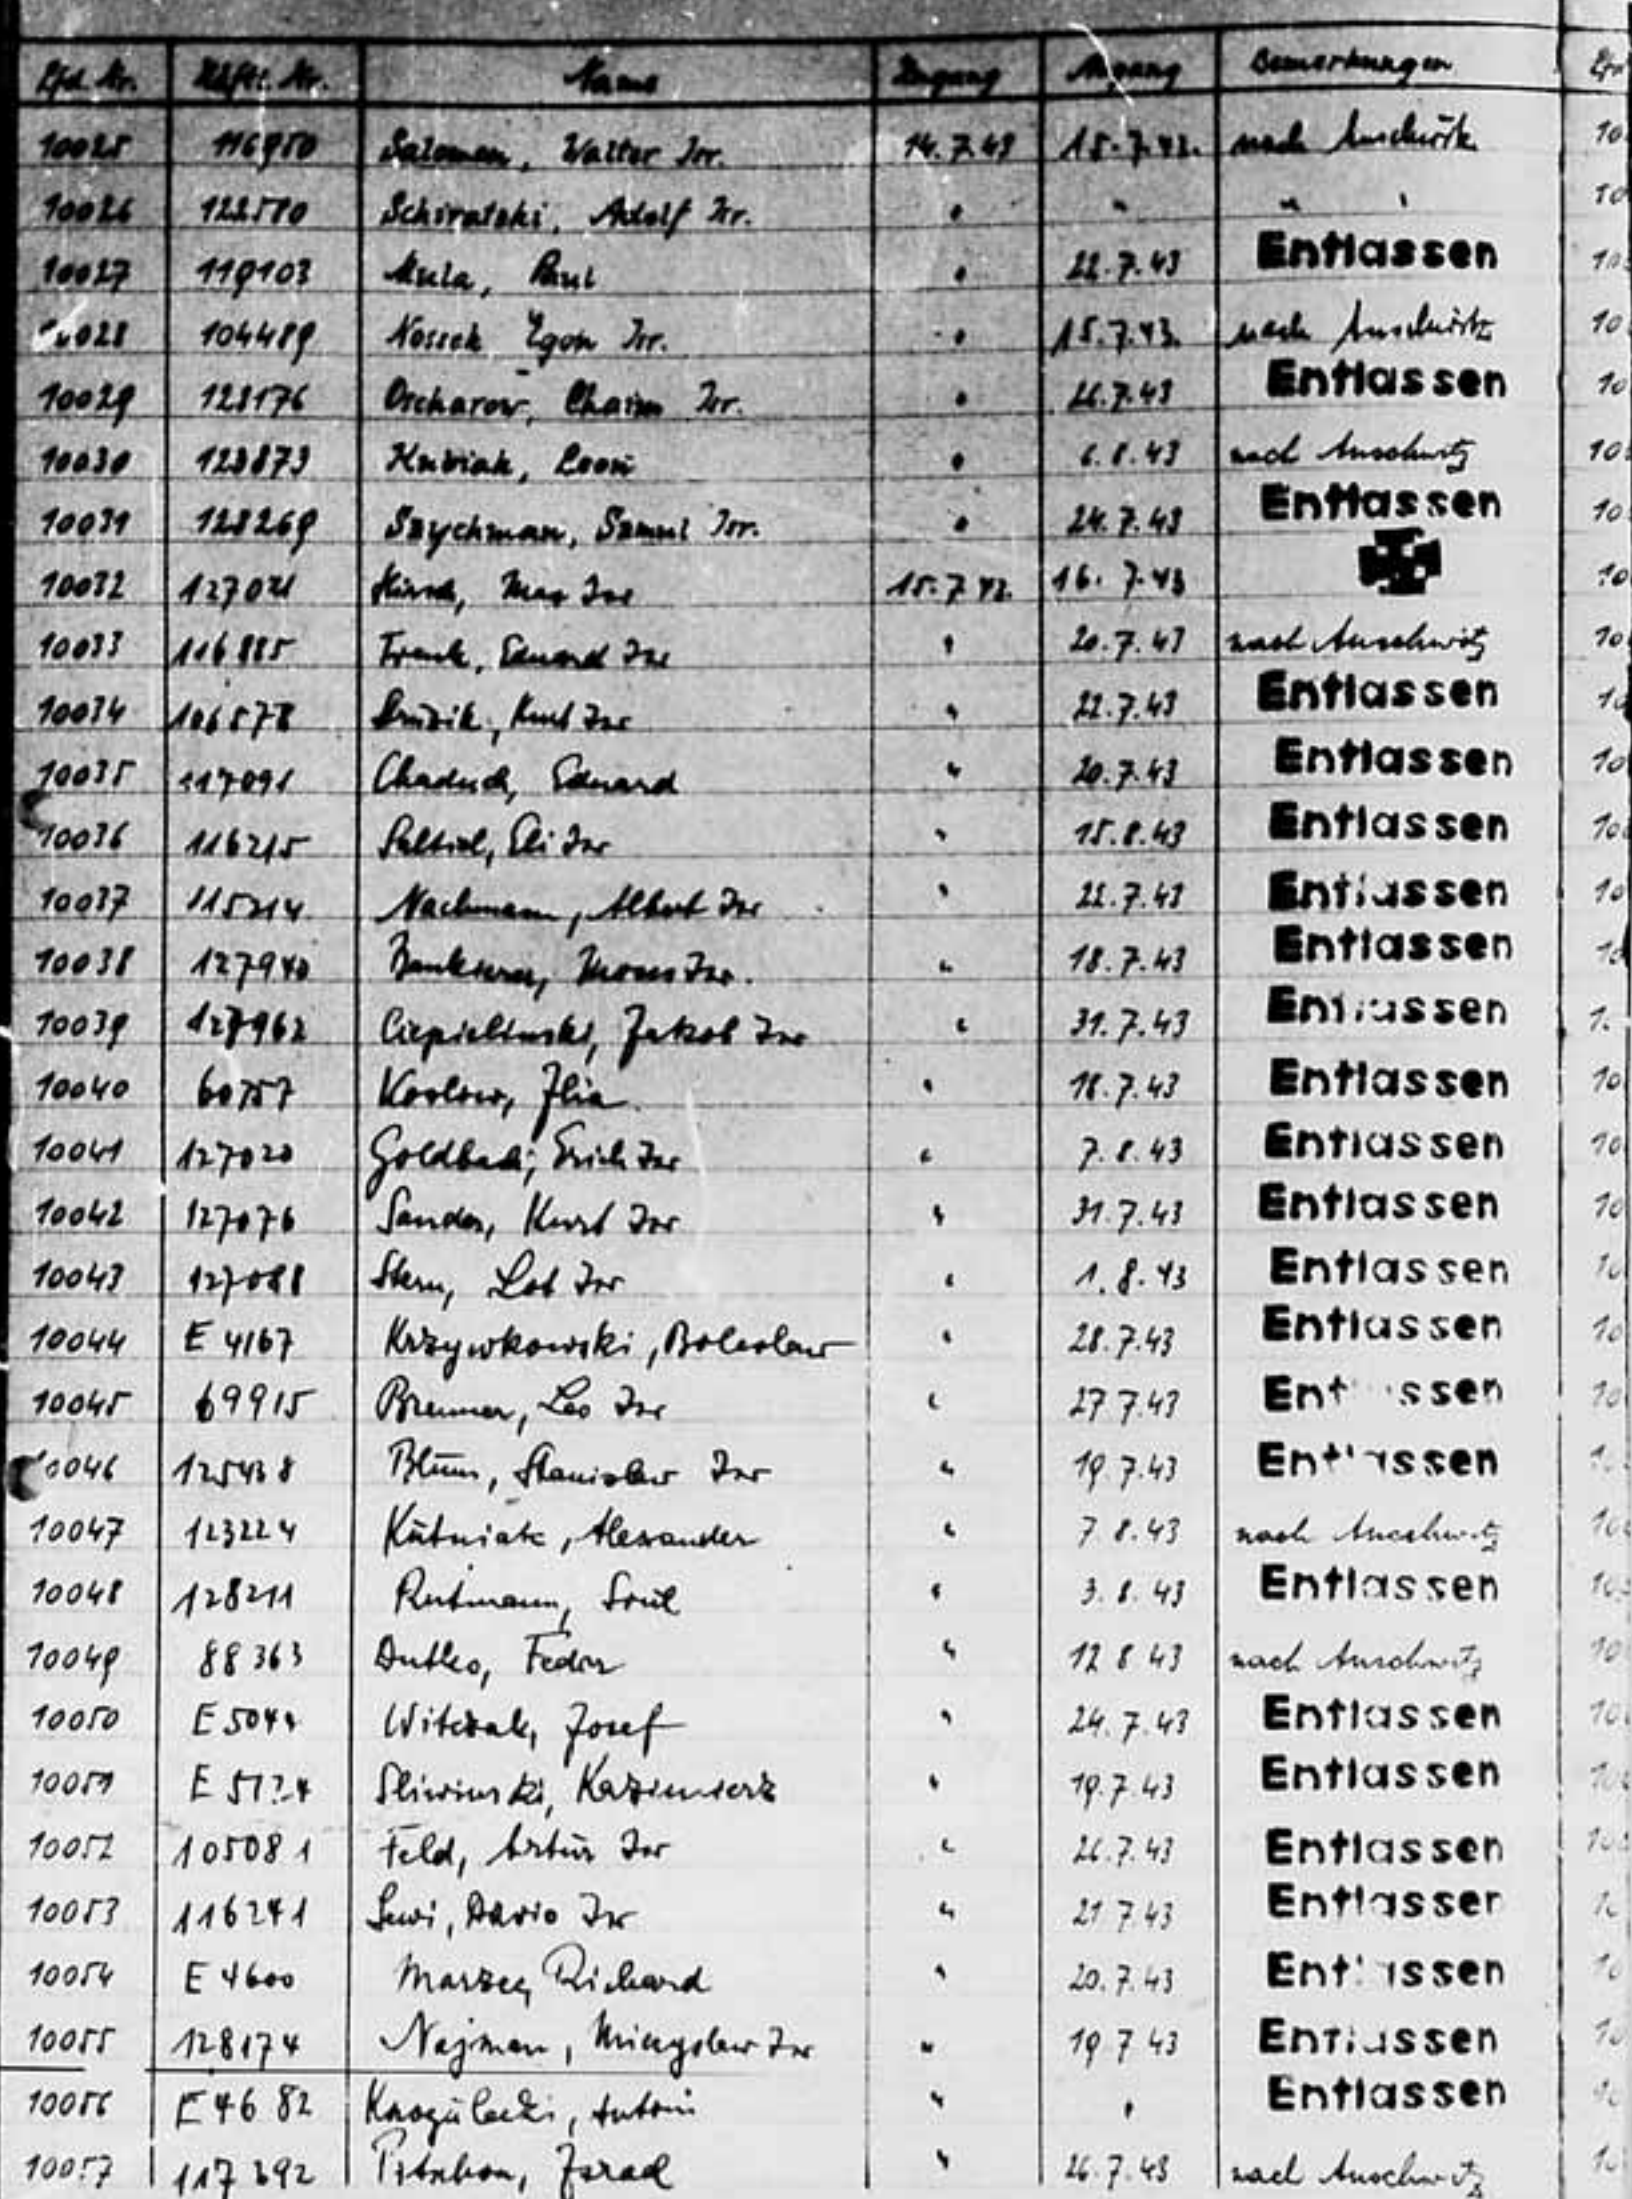 Lfd. Nr. Häftl. Nr. Name Zugang Abgang Bemerkungen
10025 116950 Salomon, Walter Isr. 14.7.43 15.7.43. nach Auschwitz
10026 122570 Schiratzki, Adolf Isr. " " " "
10027 119103 Paul " 22.7.43 Entlassen
10028 104489 Nossek Egon Isr. " 15.7.43. nach Auschwitz
10029 128176 Orcharow, Chaim Isr. " 26.7.43 Entlassen
10030 123873 Leon " 6.8.43 nach Auschwitz
10031 128269 Szychman, Szmul Isr. " 24.7.43 Entlassen
10032 127021 Hirsch, Max Isr 15.7.43. 16.7.43
10033 116885 Frank, Eduard Isr " 20.7.43 nach Auschwitz
10034 106578 Kurt Isr " 22.7.43 Entlassen
10035 117091 Eduard " 20.7.43 Entlassen
10036 116215 Saltiel, Eli Isr " 15.8.43 Entlassen
10037 115214 Nachmann, Albert Isr " 22.7.43 Entlassen
10038 127940 Moses Isr. " 18.7.43 Entlassen
10039 127962 Ciepielinski, Jakob Isr " 31.7.43 Entlassen
10040 60757 Koslow, Ilia " 18.7.43 Entlassen
10041 127020 Erich Isr " 7.8.43 Entlassen
10042 127076 Sander, Kurt Isr " 31.7.43 Entlassen
10043 127088 Stern, Lot Isr " 1.8.43 Entlassen
10044 E 4167 Krzywkowski, Boleslaw " 28.7.43 Entlassen
10045 69915 Brenner, Leo Isr " 27 7.43 Entlassen
10046 125438 Blum, Stanislaw Isr " 19.7.43 Entlassen
10047 123224 Kutniak, Alexander " 7 8.43 nach Auschwitz
10048 128211 Rutmann, Srul " 3.8.43 Entlassen
10049 88363 Dutko, Fedor " 12 8 43 nach Auschwitz
10050 Witczak, Josef " 24.7.43 Entlassen
10051 Sliwinski, Kazimierz " 19.7.43 Entlassen
10052 105081 Feld, Artur Isr " 26.7.43 Entlassen
10053 116241 Lewi, Dario Isr " 21 7.43 Entlassen
10054 E 4600 Marzec, Richard " 20.7.43 Entlassen
10055 128174 Najman, Isr " 19 7 43 Entlassen
10056 E 4682 Antoni " " Entlassen
10057 117392 Israel " 26.7.43 nach Auschwitz